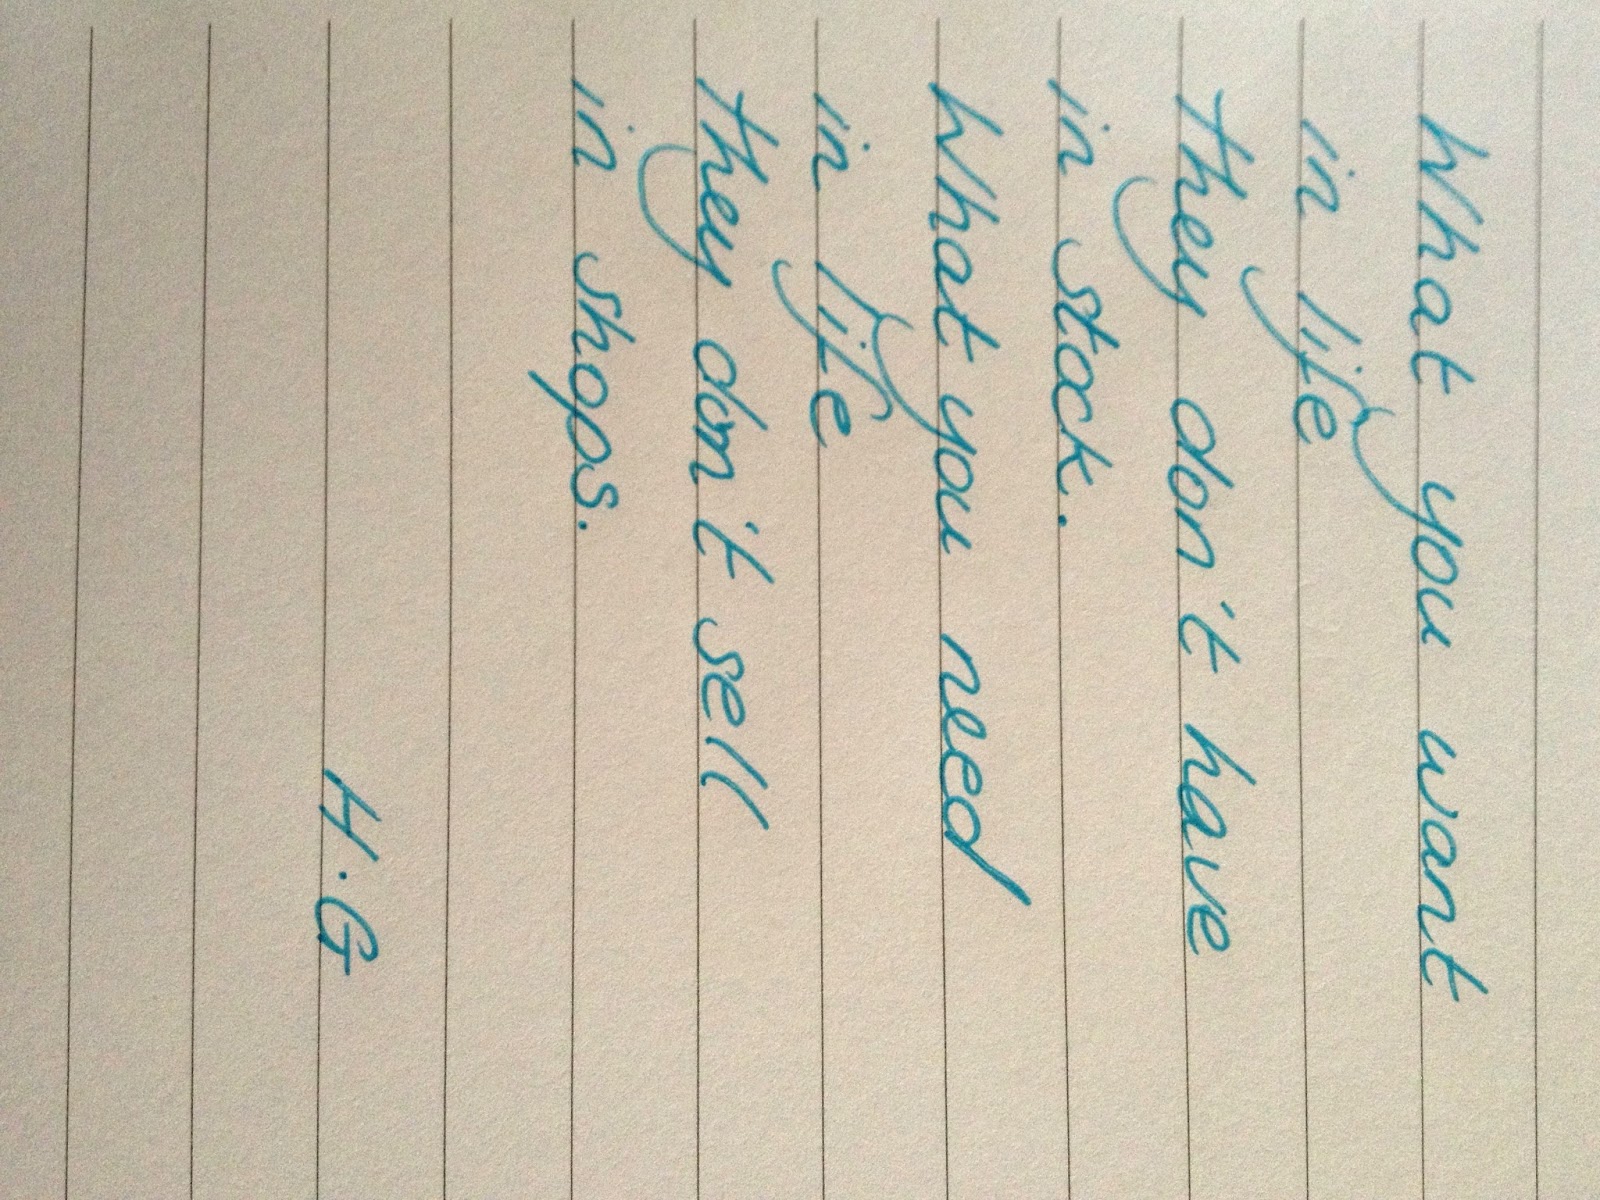 What you want
in life
they don't have
in stock.
What you need
in life
they don't sell
in shops.
H.G